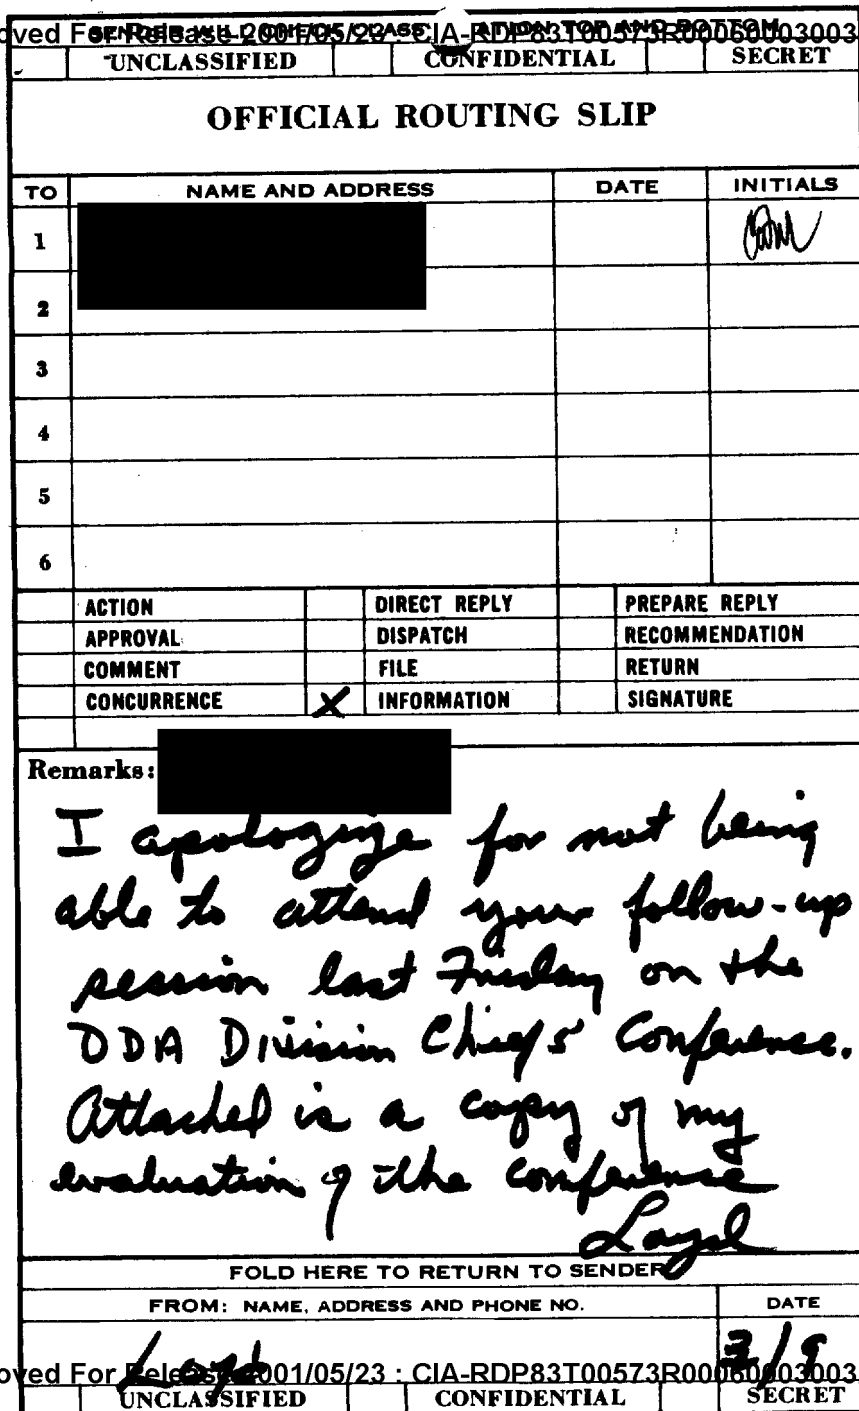 SENDER WILL CHECK CLASSIFICATION TOP AND BOTTOM
ved For Release 2001/05/23 : CIA-RDP83T00573R00060003003
UNCLASSIFIED CONFIDENTIAL SECRET
OFFICIAL ROUTING SLIP
TO NAME AND ADDRESS DATE INITIALS
1
2
3
4
5
6
ACTION DIRECT REPLY PREPARE REPLY
APPROVAL DISPATCH RECOMMENDATION
COMMENT FILE RETURN
CONCURRENCE X INFORMATION SIGNATURE
Remarks:
I apologize for not being
able to attend your follow-up
session last Friday on the
DDA Division Chiefs' Conference.
Attached is a copy of my
evaluation of the conference
Loyd
FOLD HERE TO RETURN TO SENDER
FROM: NAME, ADDRESS AND PHONE NO. DATE
Loyd 3/9
oved For Release 2001/05/23 : CIA-RDP83T00573R00060003003
UNCLASSIFIED CONFIDENTIAL SECRET